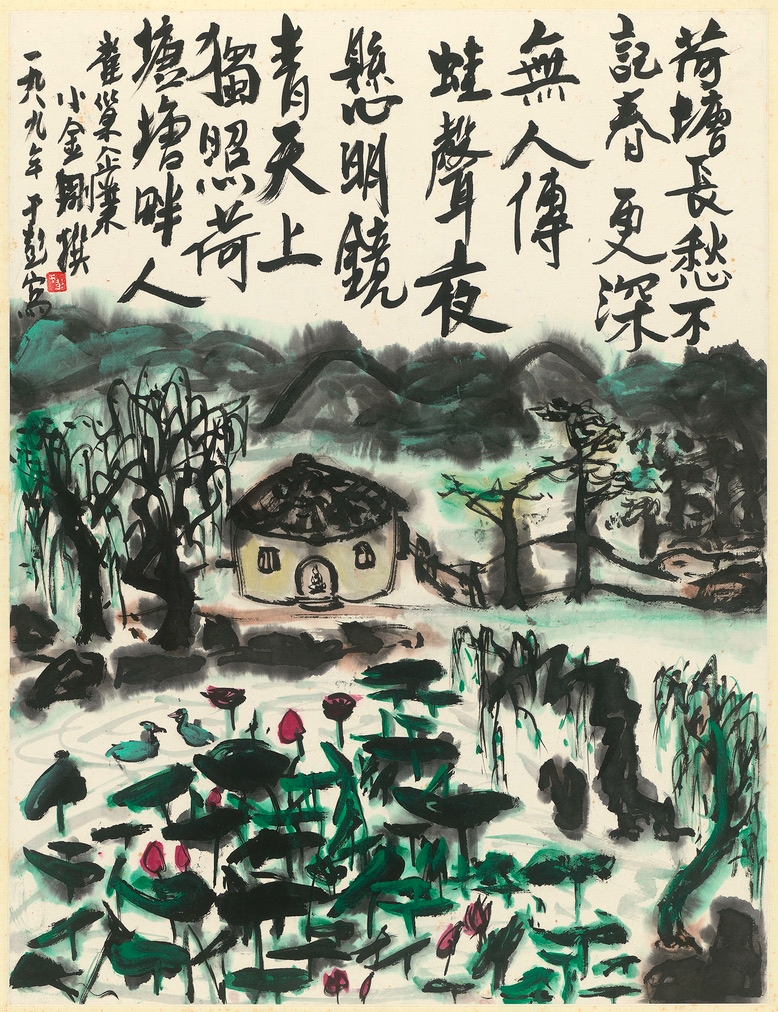 荷塘長愁不
記春更深
無人傳
蛙聲夜
懸明鏡
青天上
獨照荷
塘塘畔人
巢企業
小金剛撰
一九八九年于彭寫